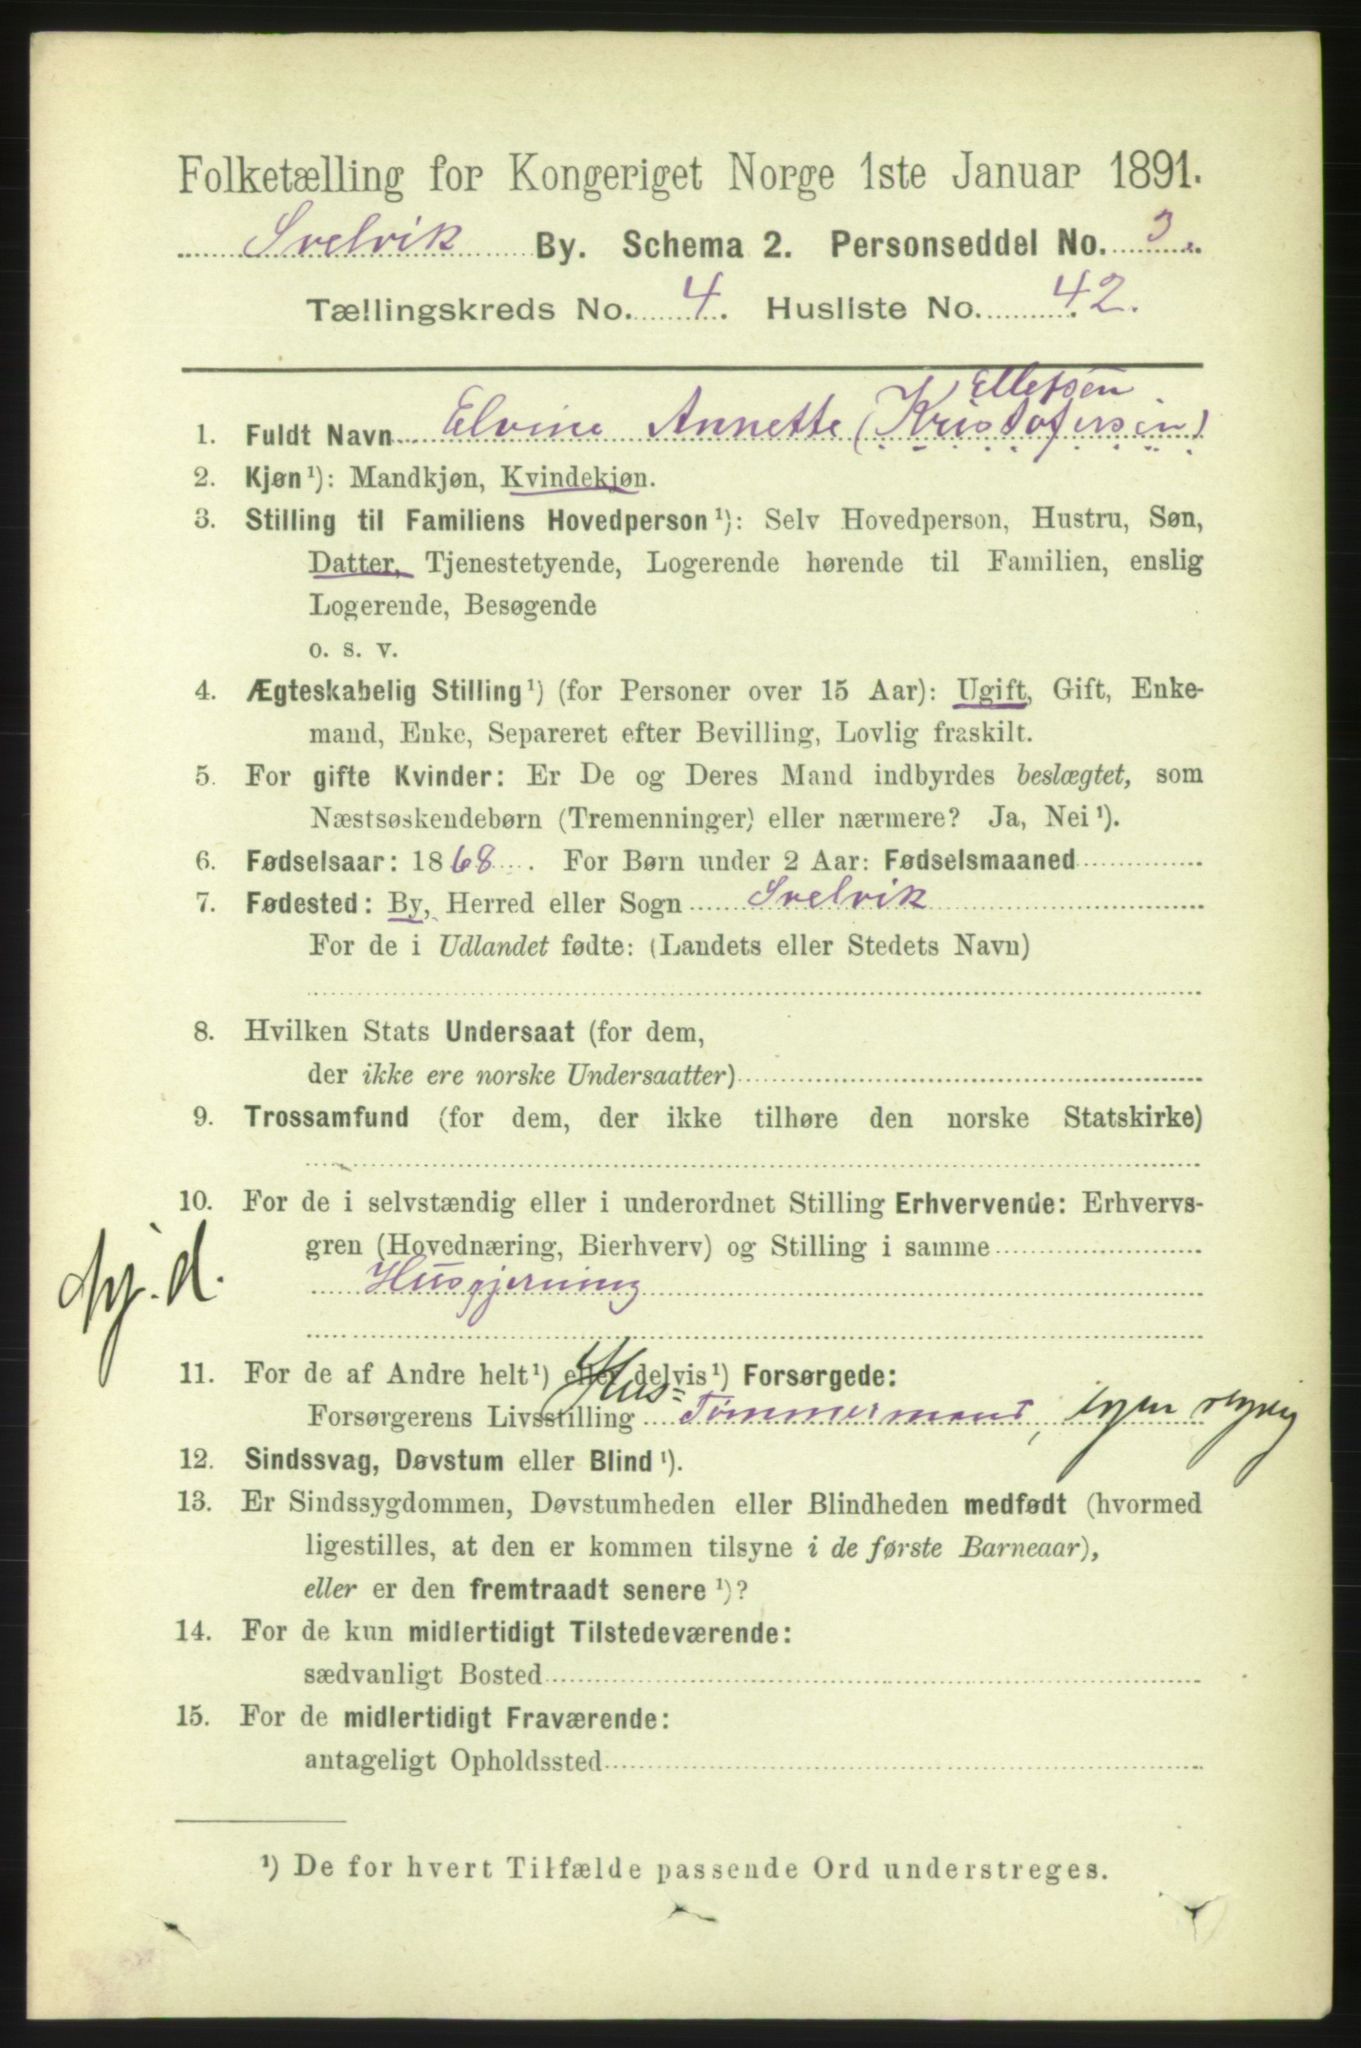 Folketælling for Kongeriget Norge 1ste Januar 1891.
Svelvik By. Schema 2. Personseddel No. 3.
Tællingskreds No. 4. Husliste No. 42.
Ellefsen
1. Fuldt Navn Elvine Annette (Kristofersen)
2. Kjøn¹): Mandkjøn, Kvindekjøn.
3. Stilling til Familiens Hovedperson¹): Selv Hovedperson, Hustru, Søn,
Datter, Tjenestetyende, Logerende hørende til Familien, enslig
Logerende, Besøgende
o. s. v.
4. Ægteskabelig Stilling¹) (for Personer over 15 Aar): Ugift, Gift, Enke-
mand, Enke, Separeret efter Bevilling, Lovlig fraskilt.
5. For gifte Kvinder: Er De og Deres Mand indbyrdes beslægtet, som
Næstsøskendebørn (Tremenninger) eller nærmere? Ja, Nei¹).
6. Fødselsaar: 1868. For Børn under 2 Aar: Fødselsmaaned
7. Fødested: By, Herred eller Sogn Svelvik
For de i Udlandet fødte: (Landets eller Stedets Navn)
8. Hvilken Stats Undersaat (for dem,
der ikke ere norske Undersaatter)
9. Trossamfund (for dem, der ikke tilhøre den norske Statskirke)
10. For de i selvstændig eller i underordnet Stilling Erhvervende: Erhvervs-
gren (Hovednæring, Bierhverv) og Stilling i samme
Husgjerning
11. For de af Andre helt¹) eller delvis¹) Forsørgede:
Forsørgerens Livsstilling Hus= Tømmermand, egen
12. Sindssvag, Døvstum eller Blind¹).
13. Er Sindssygdommen, Døvstumheden eller Blindheden medfødt (hvormed
ligestilles, at den er kommen tilsyne i de første Barneaar),
eller er den fremtraadt senere¹)?
14. For de kun midlertidigt Tilstedeværende:
sædvanligt Bosted
15. For de midlertidigt Fraværende:
antageligt Opholdssted
¹) De for hvert Tilfælde passende Ord understreges.